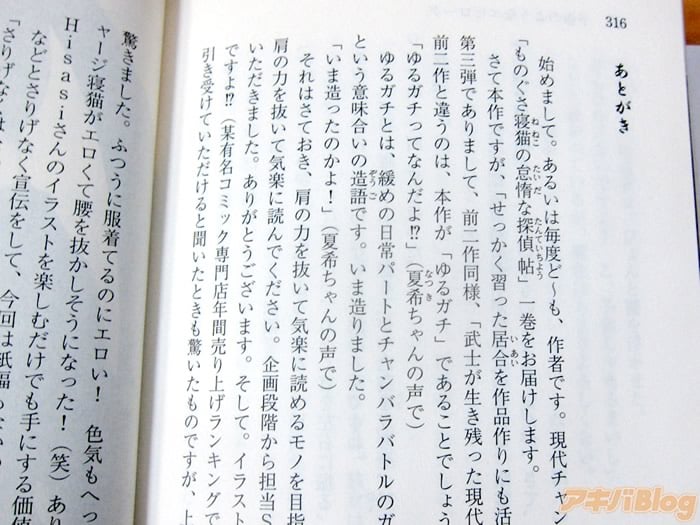 316
あとがき
始めまして。あるいは毎度ど〜も、作者です。現代チャン
「ものぐさ寝猫の怠惰な探偵帖」一巻をお届けします。
さて本作ですが、「せっかく習った居合を作品作りにも活
第三弾でありまして、前二作同様、「武士が生き残った現代
前二作と違うのは、本作が「ゆるガチ」であることでしょう
「ゆるガチってなんだよ⁉」（夏希ちゃんの声で）
ゆるガチとは、緩めの日常パートとチャンバラバトルのガ
という意味合いの造語です。いま造りました。
「いま造ったのかよ！」（夏希ちゃんの声で）
それはさておき、肩の力を抜いて気楽に読めるモノを目指
肩の力を抜いて気楽に読んでください。企画段階から担当S
いただきました。ありがとうございます。そして。イラスト
ですよ⁉（某有名コミック専門店年間売り上げランキングで
引き受けていただけると聞いたときも驚いたものですが、上
驚きました。ふつうに服着てるのにエロい！　色気もへっ
ャージ寝猫がエロくて腰を抜かしそうになった！（笑）あり
Hisasiさんのイラストを楽しむだけでも手にする価値
などとさりげなく宣伝をして、今回は紙幅も
「さりげな
アキバBlog